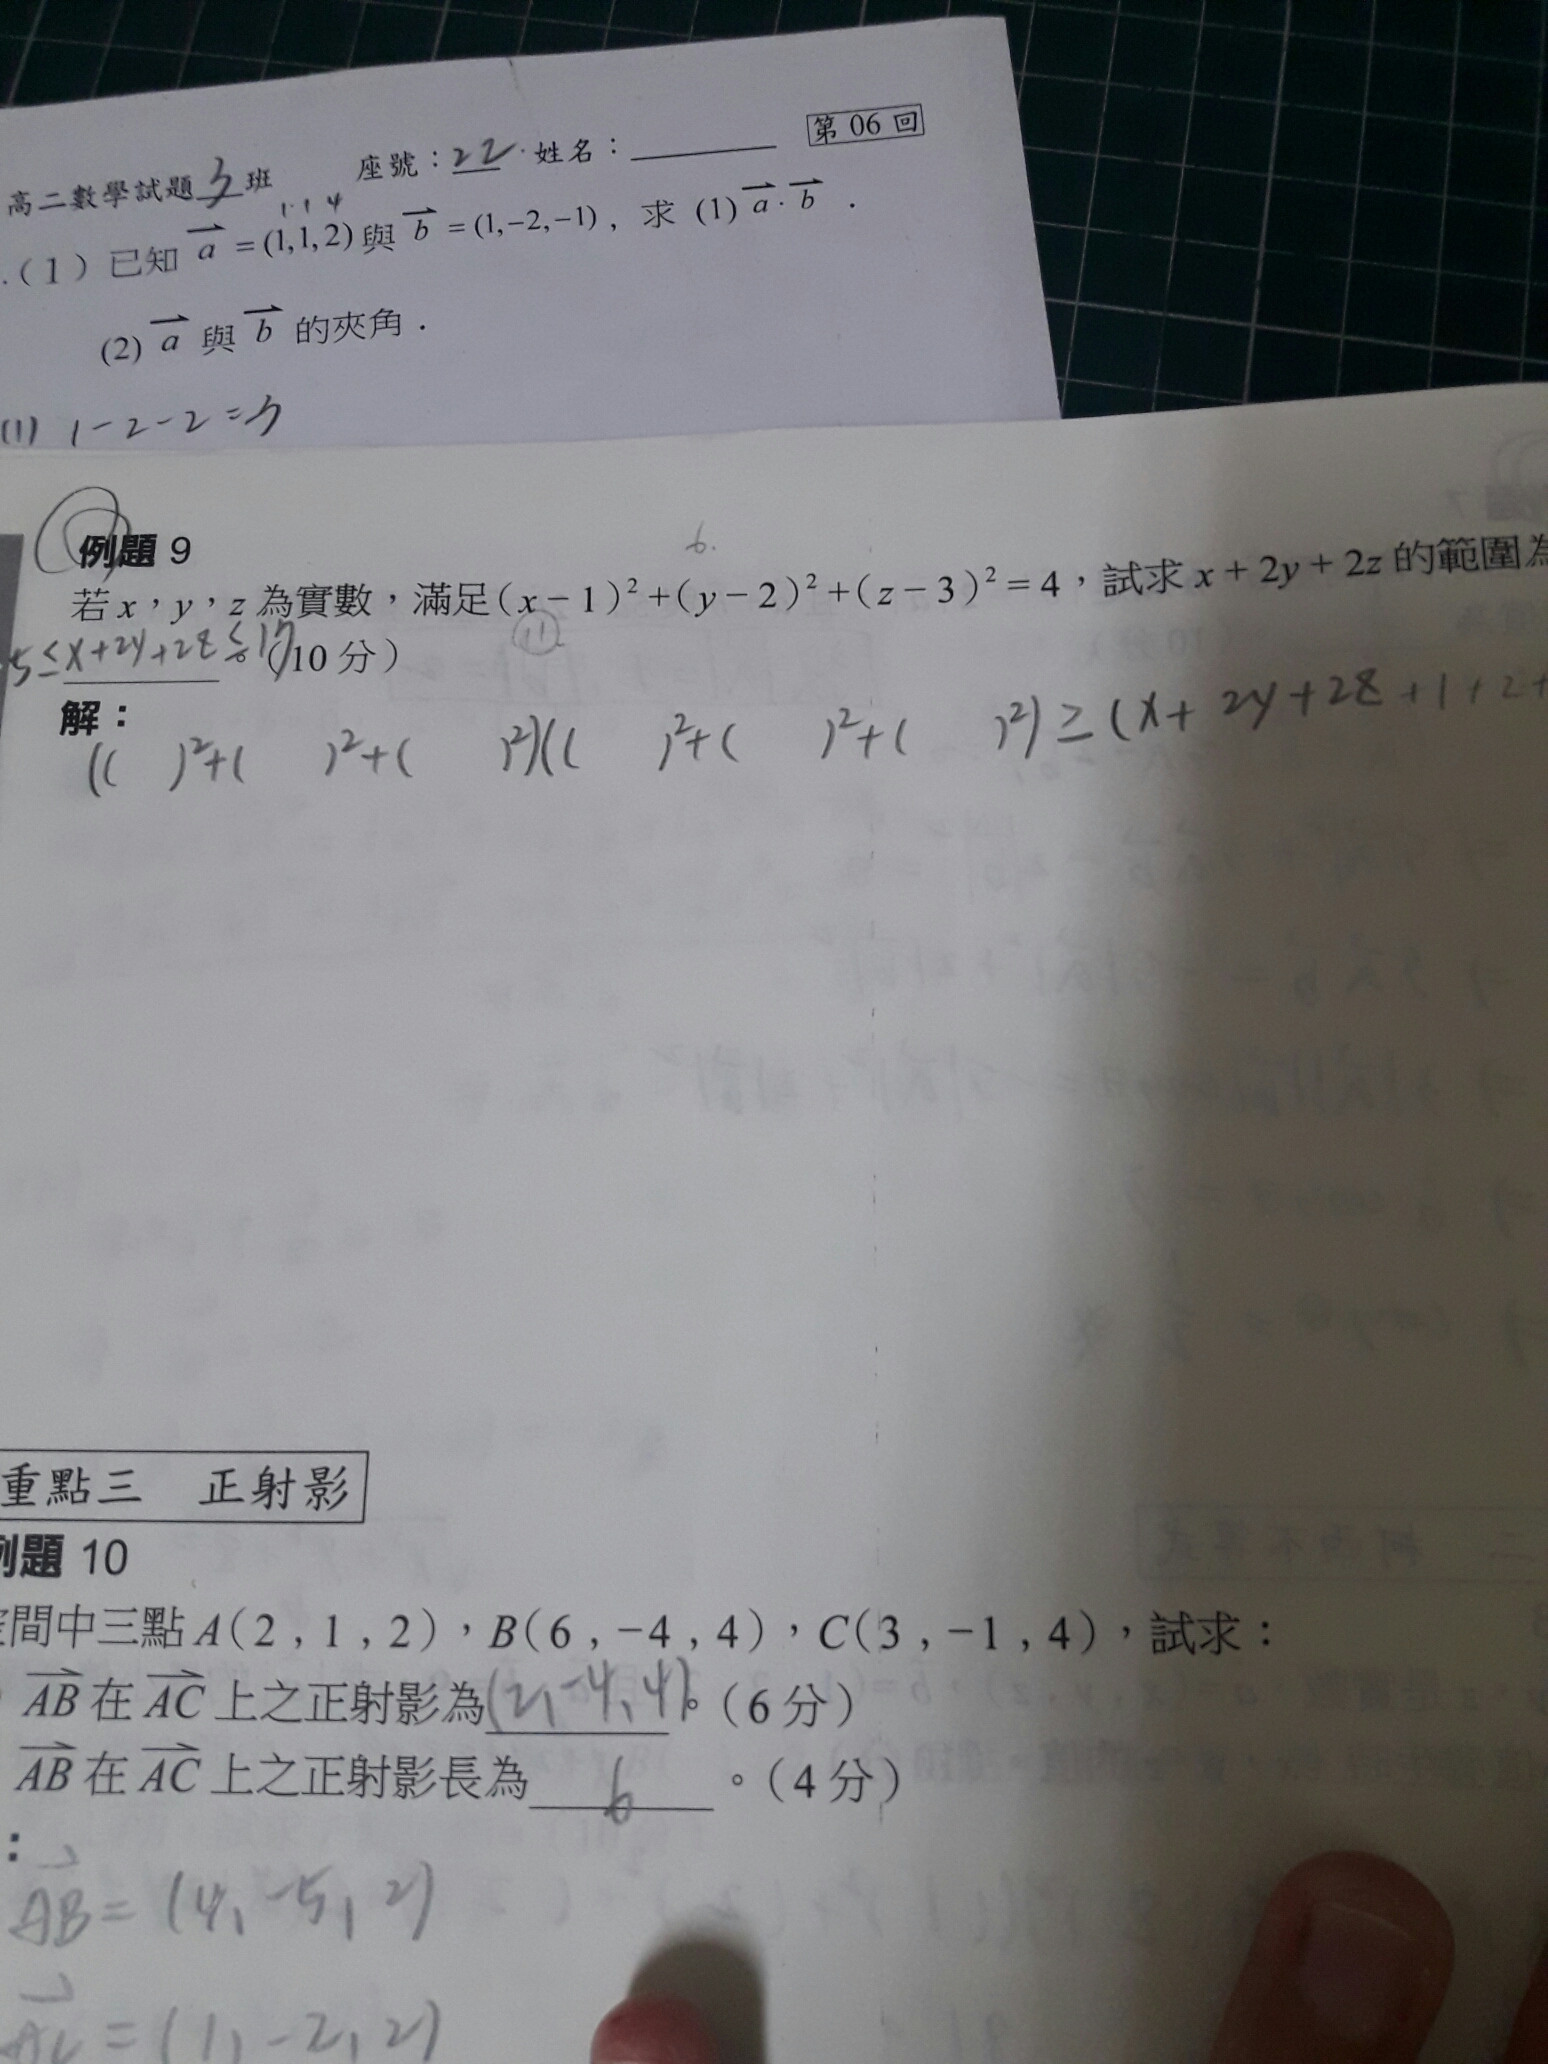 第 06 回
高二數學試題 3 班 座號：22 姓名：
1 1 4
.（1）已知 a = (1,1,2) 與 b = (1,−2,−1)，求 (1) a · b ．
(2) a 與 b 的夾角．
(1) 1-2-2=3
例題 9
6.
若 x，y，z 為實數，滿足(x−1)²+(y−2)²+(z−3)²=4，試求 x+2y+2z 的範圍為
5≤x+2y+2z≤17。（10 分）
11
解：
(( )²+( )²+( )²)(( )²+( )²+( )²) ≥ (x+2y+2z+1+2+
重點三 正射影
例題 10
空間中三點 A(2 , 1 , 2)，B(6 , −4 , 4)，C(3 , −1 , 4)，試求：
AB 在 AC 上之正射影為(2,-4,4)。（6 分）
AB 在 AC 上之正射影長為 6 。（4 分）
：
AB = (4, -5, 2)
AC = (1, -2, 2)